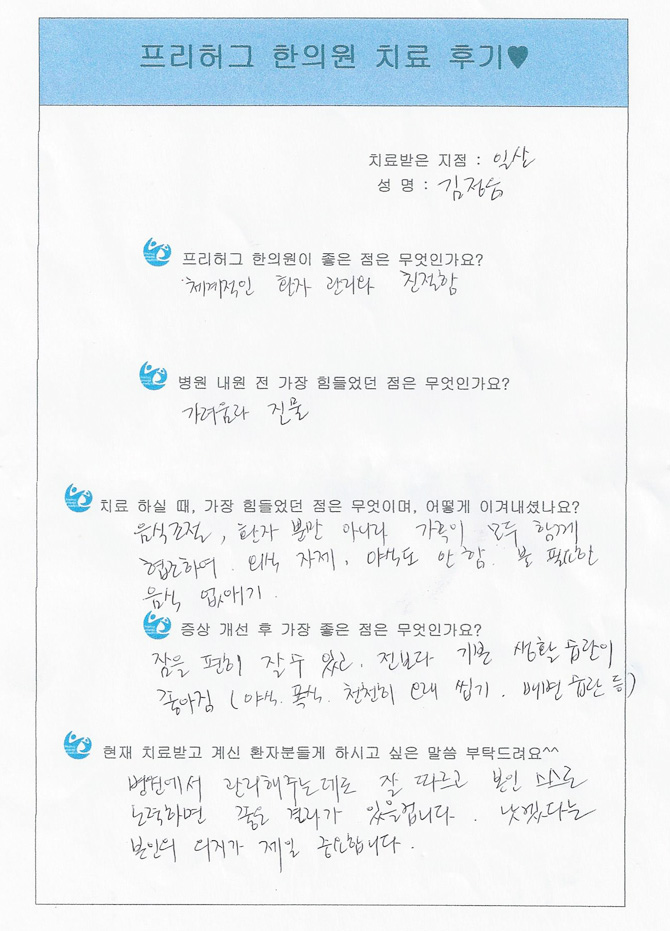 프리허그 한의원 치료 후기♥
치료받은 지점 : 일산
성 명 : 김정승
프리허그 한의원이 좋은 점은 무엇인가요?
체계적인 환자 관리와 친절함
병원 내원 전 가장 힘들었던 점은 무엇인가요?
가려움과 진물
치료 하실 때, 가장 힘들었던 점은 무엇이며, 어떻게 이겨내셨나요?
음식조절, 환자 뿐만 아니라 가족이 모두 함께
협조하며 외식 자제, 야식도 안함. 불 필요한
음식 없애기.
증상 개선 후 가장 좋은 점은 무엇인가요?
잠을 편히 잘수 있고, 전보다 기본 생활 습관이
좋아짐 (야식. 폭식. 천천히 오래 씹기. 배변 습관 등)
현재 치료받고 계신 환자분들게 하시고 싶은 말씀 부탁드려요^^
병원에서 관리해주는데로 잘 따르고 본인 스스로
노력하면 좋은 결과가 있을겁니다. 낫겠다는
본인의 의지가 제일 중요합니다.